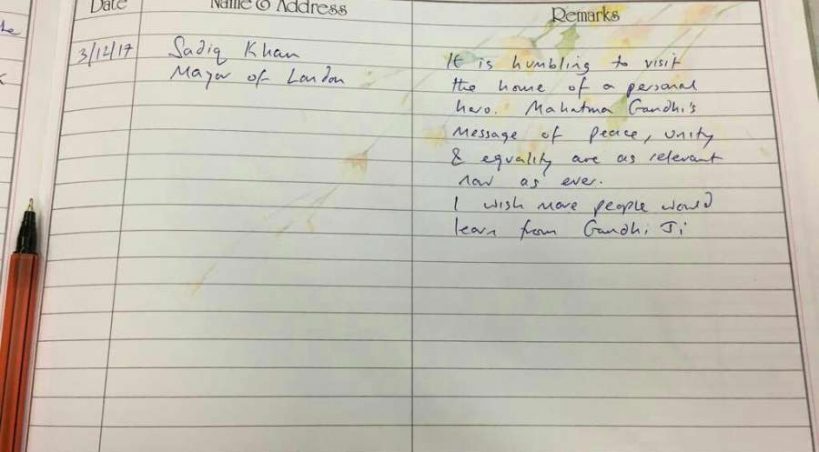 Date Name & Address Remarks
3/12/17 Sadiq Khan
Mayor of London
It is humbling to visit
the home of a personal
hero. Mahatma Gandhi's
message of peace, unity
& equality are as relevant
now as ever.
I wish more people would
learn from Gandhi Ji